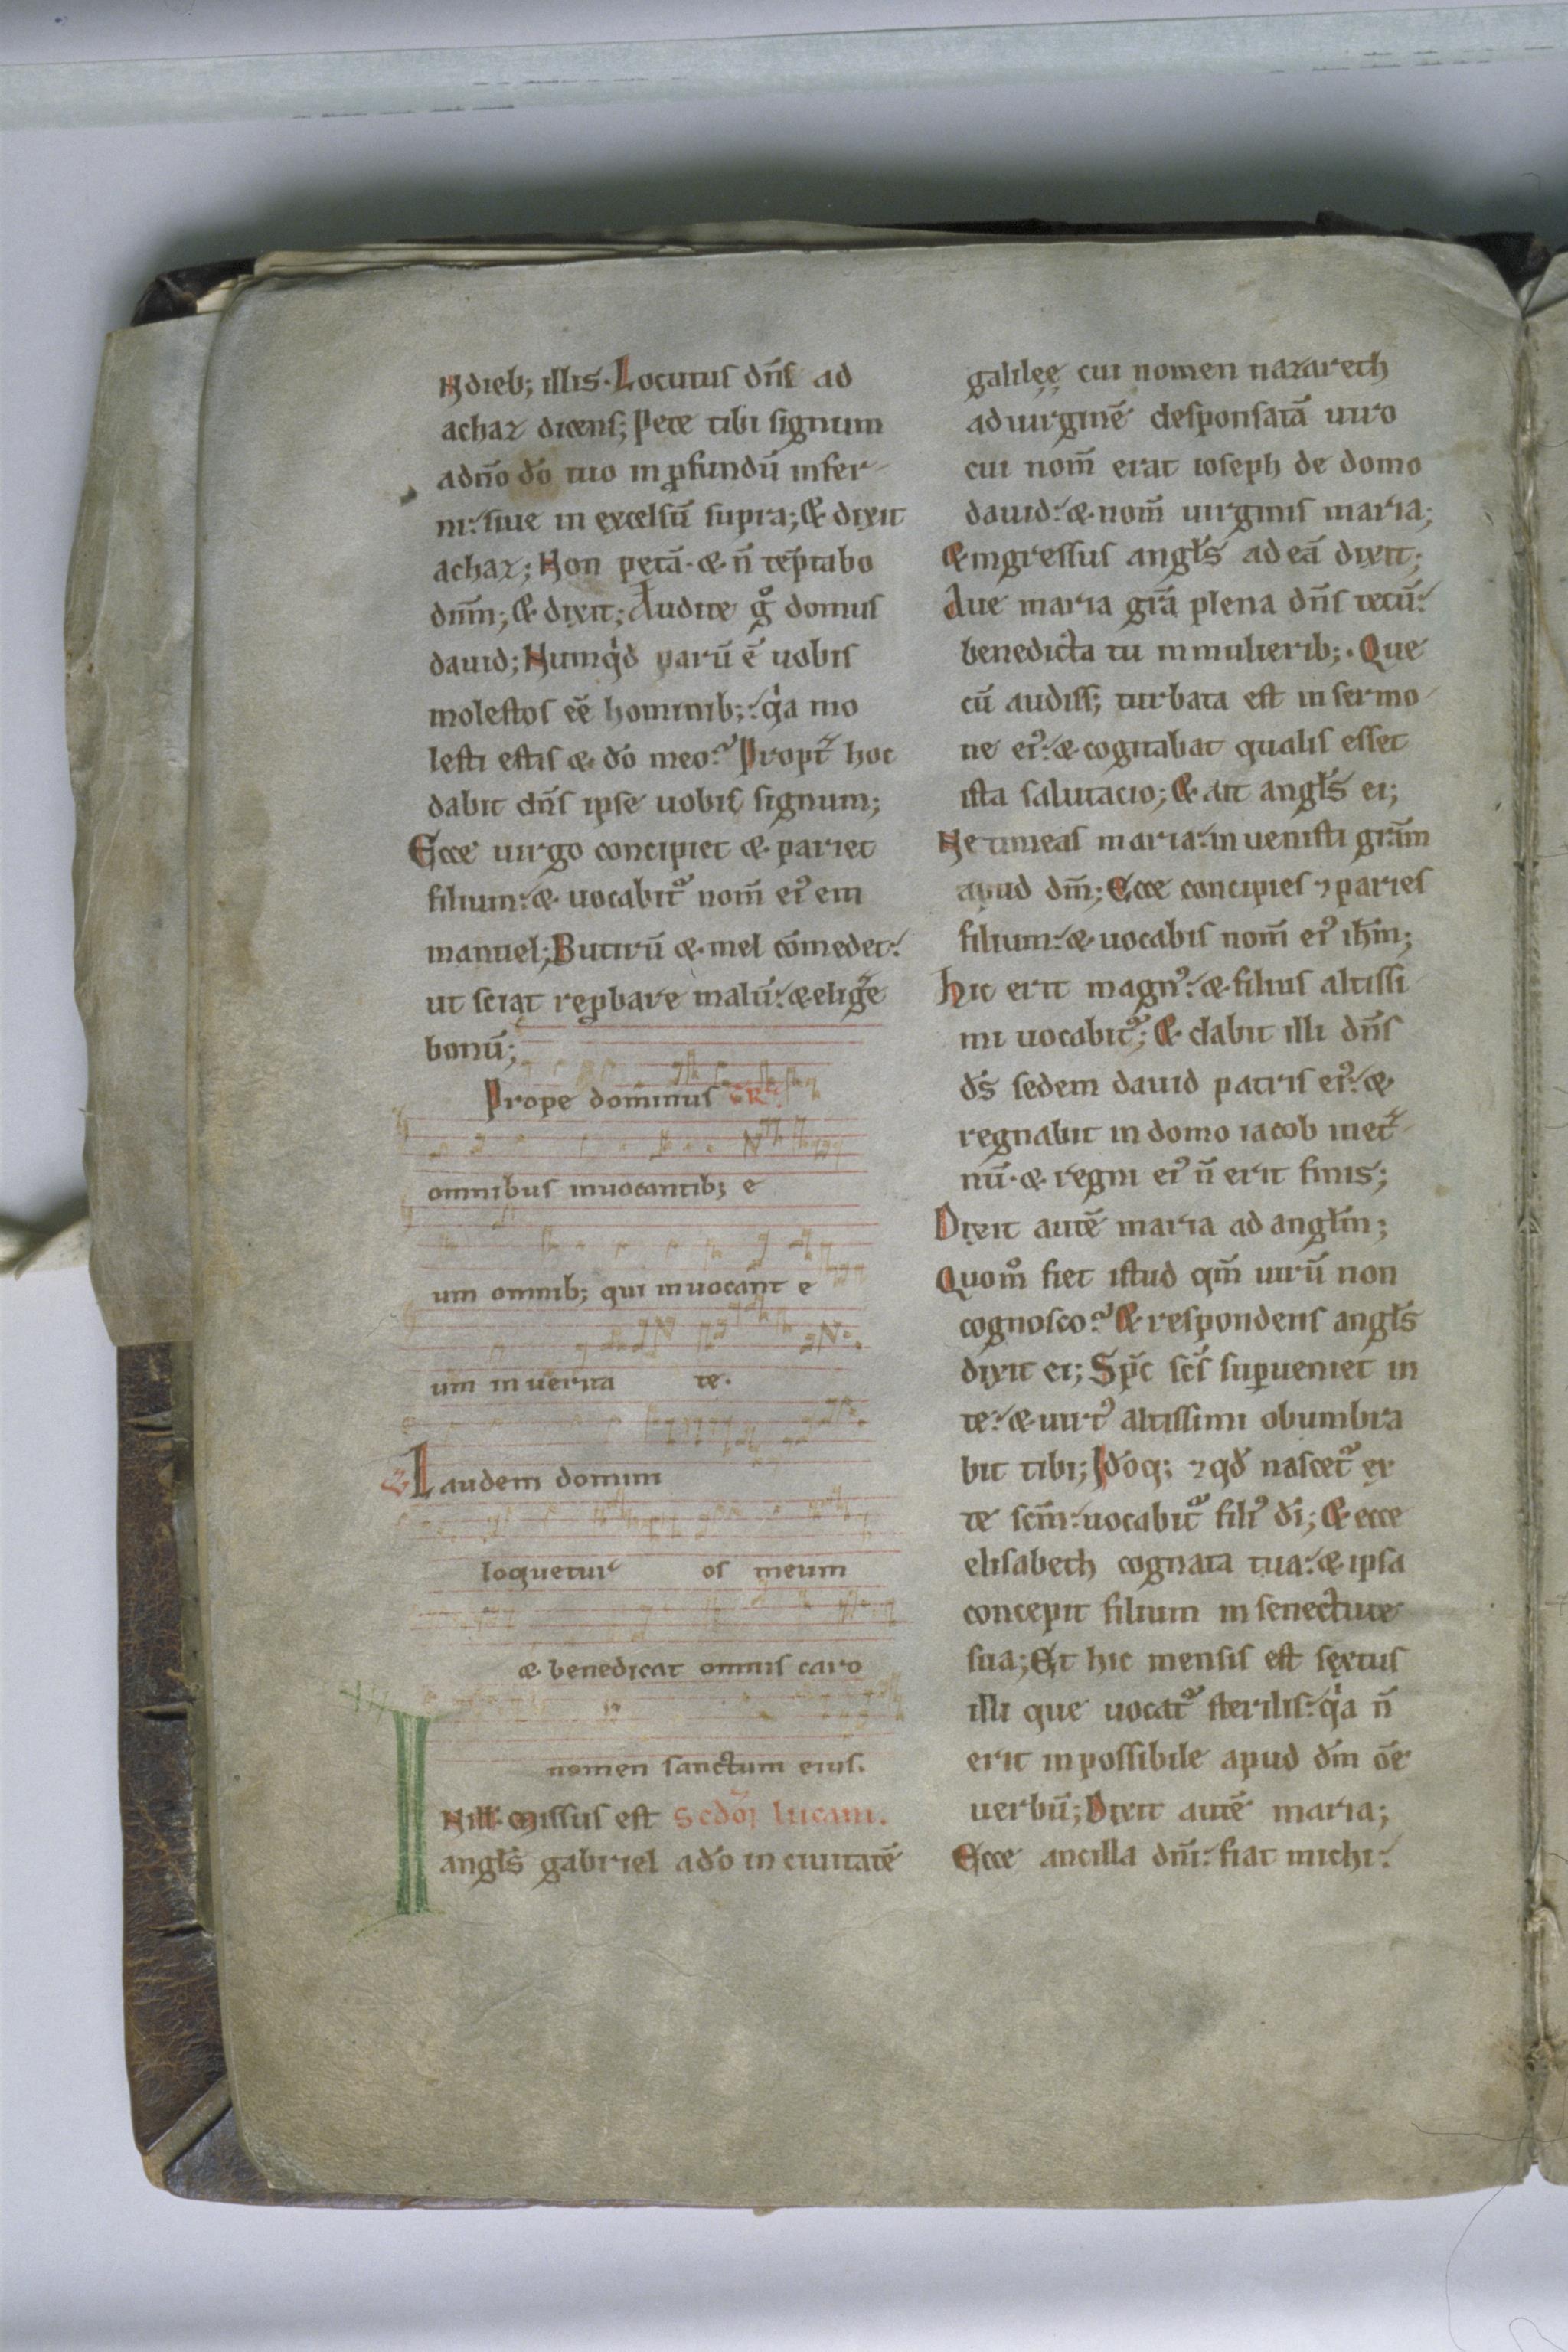 Ndieb; illis. Locutus dn̄s ad
achaz dicens; Pete tibi signum
adn̄o dō tuo in ꝓfundū infer-
ni: siue in excelsū supra; & dixit
achaz; Non petā. & n̄ tēptabo
dnm̄; & dixit; Audite gͦ domus
dauid; Numqͥd parū ē uobis
molestos eē hominib;: qͥa mo
lesti estis & dō meo? Propt̄ hoc
dabit dn̄s ipse uobis signum;
Ecce uirgo concipiet & pariet
filium: & uocabit᷑ nom̄ ei᾽ em
manuel; Butirū & mel cōmedet:
ut sciat reꝓbare malū: & eliḡe
bonū;
Prope dominus GR
omnibus inuocantib; e
um omnib; qui inuocant e
um in uerita te.
V Laudem domini
loquetur os meum
& benedicat omnis caro
nomen sanctum eius.
IN ill. Missus est Scdm̄ lucam.
angl̄s gabriel adō in ciuitatē
galilęę cui nomen nazareth
ad uirginē desponsatā uiro
cui nom̄ erat ioseph de domo
dauid: & nom̄ uirginis maria;
& ingressus angl̄s ad eā dixit;
Aue maria gr̄a plena dn̄s tecū:
benedicta tu in mulierib;. Que
cū audiss; turbata est in sermo
ne ei᾽: & cogitabat qualis esset
ista salutacio; & ait angl̄s ei;
Ne timeas maria: inuenisti grām
apud dm̄; Ecce concipies ⁊ paries
filium: & uocabis nom̄ ei᾽ ih̄m;
hic erit magn᾽: & filius altissi
mi uocabit᷑; & dabit illi dn̄s
ds̄ sedem dauid patris ei᾽: &
regnabit in domo iacob inet̄
nū. & regni ei᾽ n̄ erit finis;
Dixit autē maria ad angl̄m;
Quom̊ fiet istud qm̄ uirū non
cognosco? & respondens angl̄s
dixit ei; Sp̄c sc̄s supueniet in
te: & uirt᾽ altissimi obumbra
bit tibi; Idōq; ⁊ qd̄ nascet᷑ ex
te scm̄: uocabit᷑ fili᾽ dī; & ecce
elisabeth cognata tua: & ipsa
concepit filium in senectute
sua; Et hic mensis est sextus
illi que uocat᷑ sterilis: qͥa n̄
erit inpossibile apud dm̄ ōe
uerbū; Dixit autē maria;
Ecce ancilla dn̄i: fiat michi: